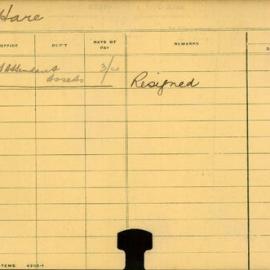 Hare
OFFICE DEP'T RATE OF PAY REMARKS
Attendant 3/00 Resigned